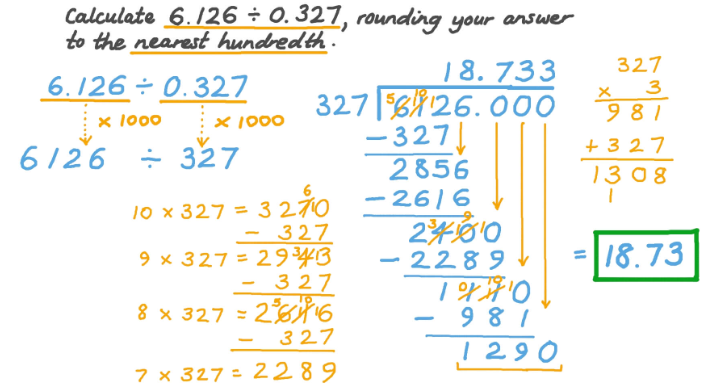 Calculate 6.126 ÷ 0.327, rounding your answer
to the nearest hundredth.
6.126 ÷ 0.327
x 1000 x 1000
6126 ÷ 327
10 x 327 = 3270
- 327
9 x 327 = 2943
- 327
8 x 327 = 2616
- 327
7 x 327 = 2289
18.733
327 6126.000
-327
2856
-2616
2400
-2289
1110
- 981
1290
327
x 3
981
+327
1308
1
= 18.73